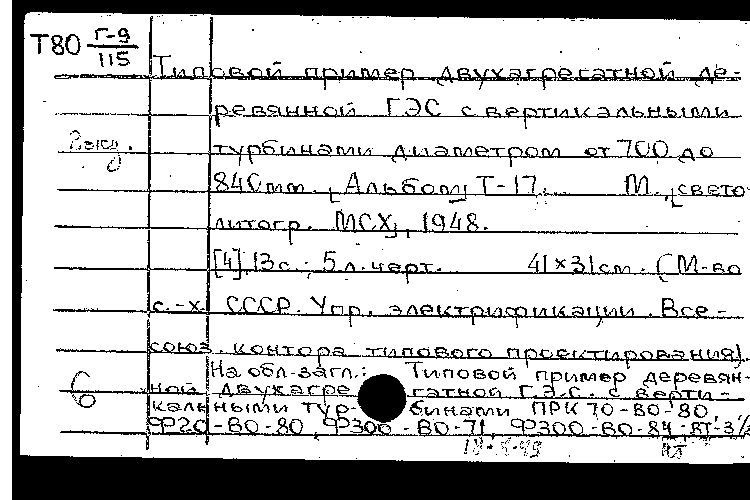 Т80 Г-9/115
Типовой пример двухагрегатной де-
ревянной ГЭС с вертикальными
турбинами диаметром от 700 до
840мм. [Альбом] Т-17. М., [свето-
литогр. МСХ], 1948.
[4], 13 с.; 5 л. черт. 41×31см. (М-во
с.-х. СССР. Упр. электрификации. Все-
союз. контора типового проектирования).
На обл. загл.: Типовой пример деревян-
ной двухагрегатной Г.Э.С. с верти-
кальными турбинами ПРК 70-ВО-80,
Ф20-ВО-80, Ф300-ВО-71, Ф300-ВО-84
6